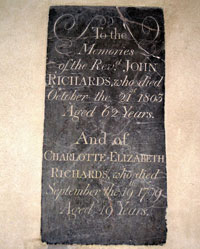 To the
Memories
of the Revd. JOHN
RICHARDS, who died
October the 21 1803
Aged 62 Years.
And of
CHARLOTTE-ELIZABETH
RICHARDS, who died
September the 19 1779
Aged 19 Years.